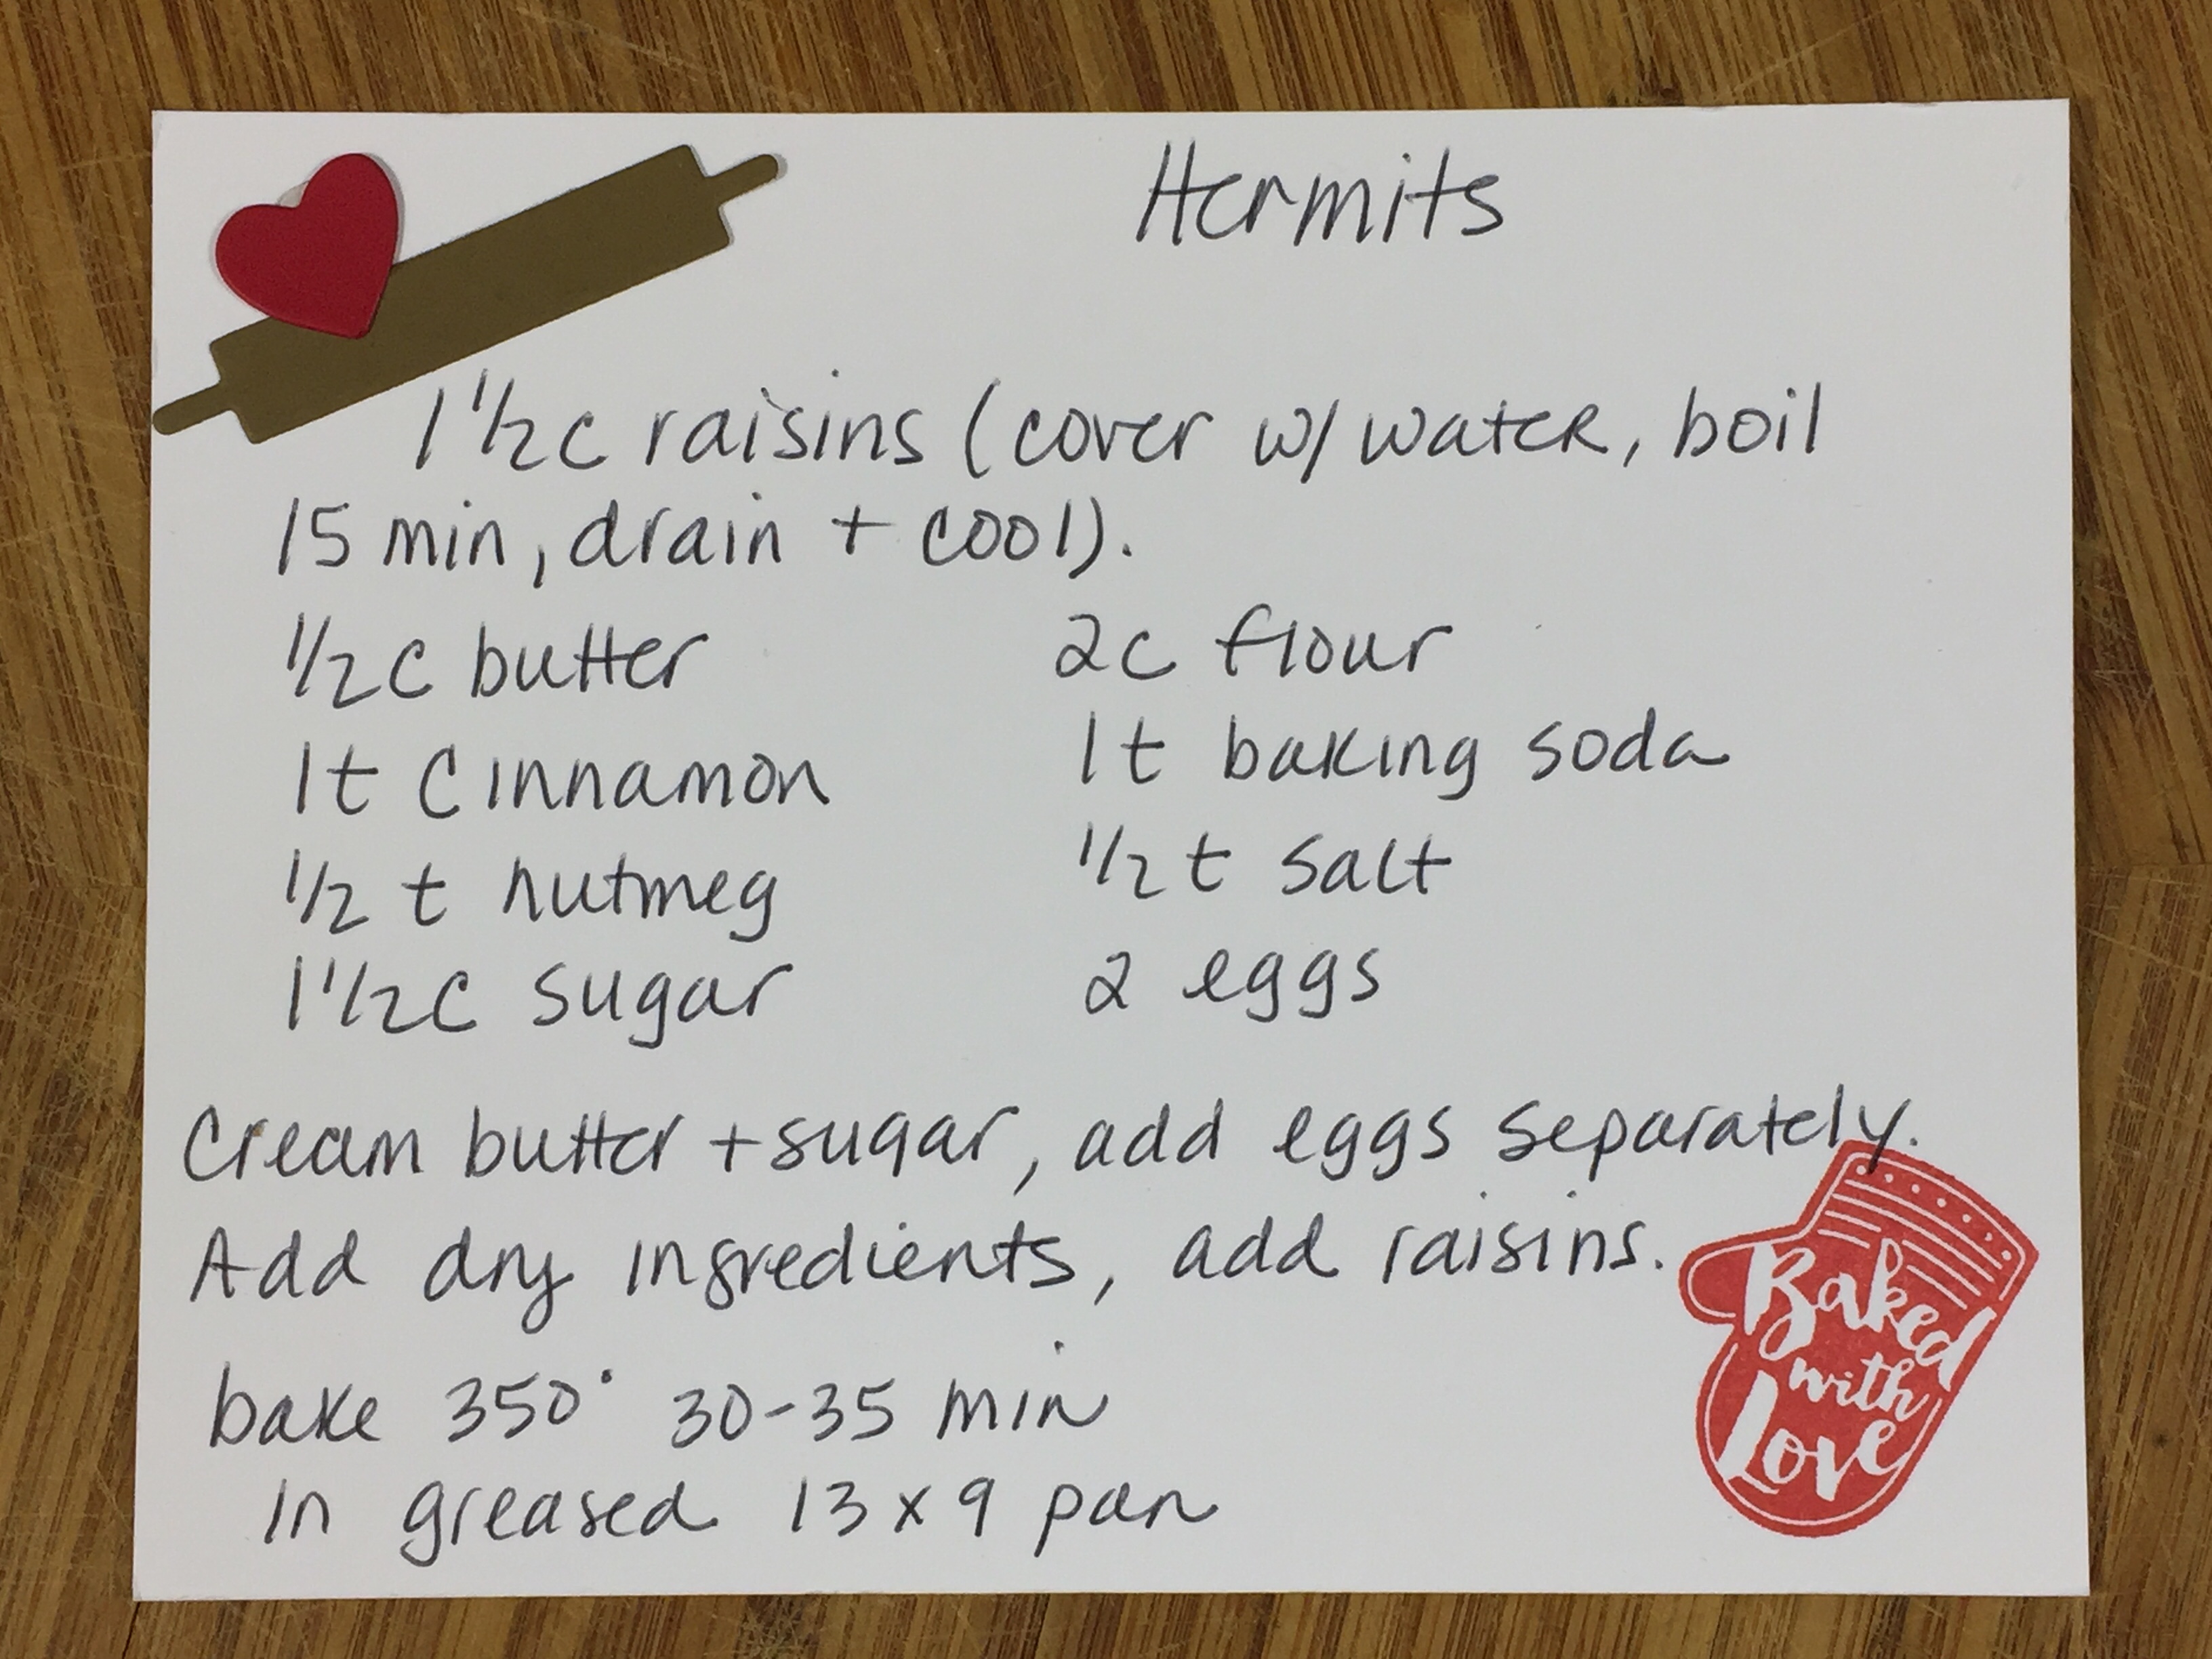 Hermits
1 1/2c raisins (cover w/ water, boil
15 min, drain + cool).
1/2c butter
2c flour
1t cinnamon
1t baking soda
1/2 t nutmeg
1/2 t salt
1 1/2c sugar
2 eggs
Cream butter + sugar, add eggs separately.
Add dry ingredients, add raisins.
bake 350° 30-35 min
in greased 13 x 9 pan
Baked
with
Love